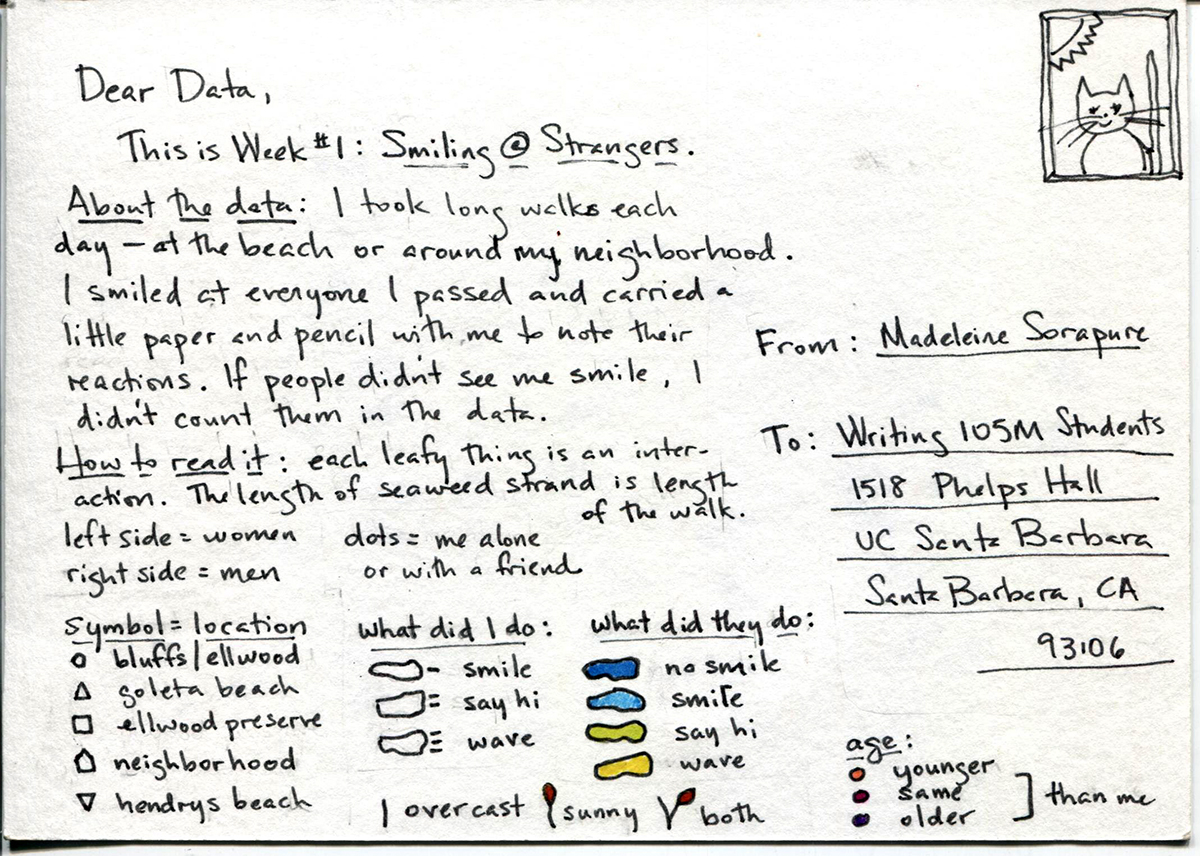 Dear Data,
This is Week #1: Smiling @ Strangers.
About the data: I took long walks each
day – at the beach or around my neighborhood.
I smiled at everyone I passed and carried a
little paper and pencil with me to note their
reactions. If people didn't see me smile, I
didn't count them in the data.
How to read it: each leafy thing is an inter-
action. The length of seaweed strand is length
of the walk.
left side = women
right side = men
dots = me alone
or with a friend
symbol = location
bluffs/ellwood
goleta beach
ellwood preserve
neighborhood
hendrys beach
what did I do:
smile
say hi
wave
what did they do:
no smile
smile
say hi
wave
overcast sunny both
From: Madeleine Sorapure
To: Writing 105M Students
1518 Phelps Hall
UC Santa Barbara
Santa Barbara, CA
93106
age:
younger
same
older
than me